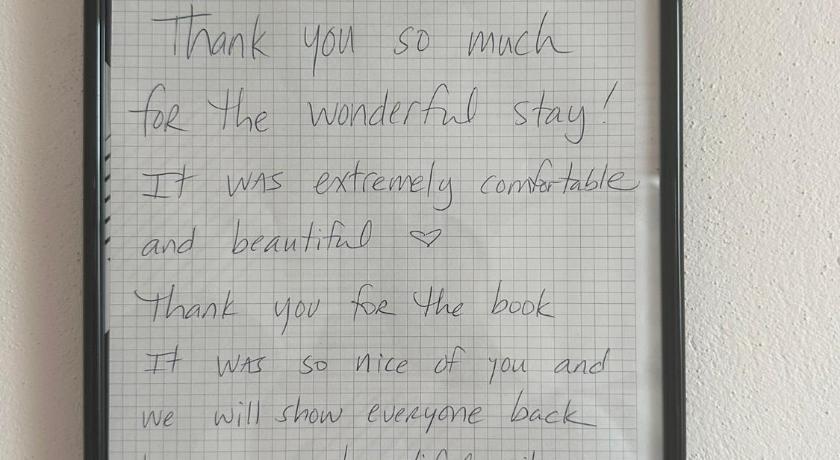 Thank you so much
for the wonderful stay!
It was extremely comfortable
and beautiful ♡
Thank you for the book
It was so nice of you and
we will show everyone back